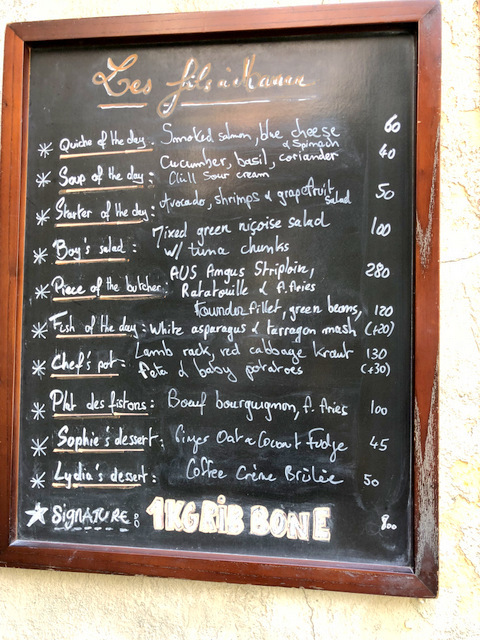 Les fils à Maman
* Quiche of the day: Smoked salmon, blue cheese 60
& Spinach
* Soup of the day: Cucumber, basil, coriander 40
Chili Sour cream
* Starter of the day: Avocado, shrimps & grapefruit 50
Salad
* Boy's salad: Mixed green niçoise salad 100
w/ tuna chunks
* Piece of the butcher: AUS Angus Striploin, 280
Ratatouille & f. fries
* Fish of the day: flounder fillet, green beans, 120
white asparagus & tarragon mash (+20)
* Chef's pot: Lamb rack, red cabbage kraut 130
feta & baby potatoes (+30)
* Plat des fistons: Boeuf bourguignon, f. fries 100
* Sophie's dessert: Ginger Oat & Coconut Fudge 45
* Lydia's dessert: Coffee Crème Brûlée 50
★ SIGNATURE: 1KG RIB BONE 800